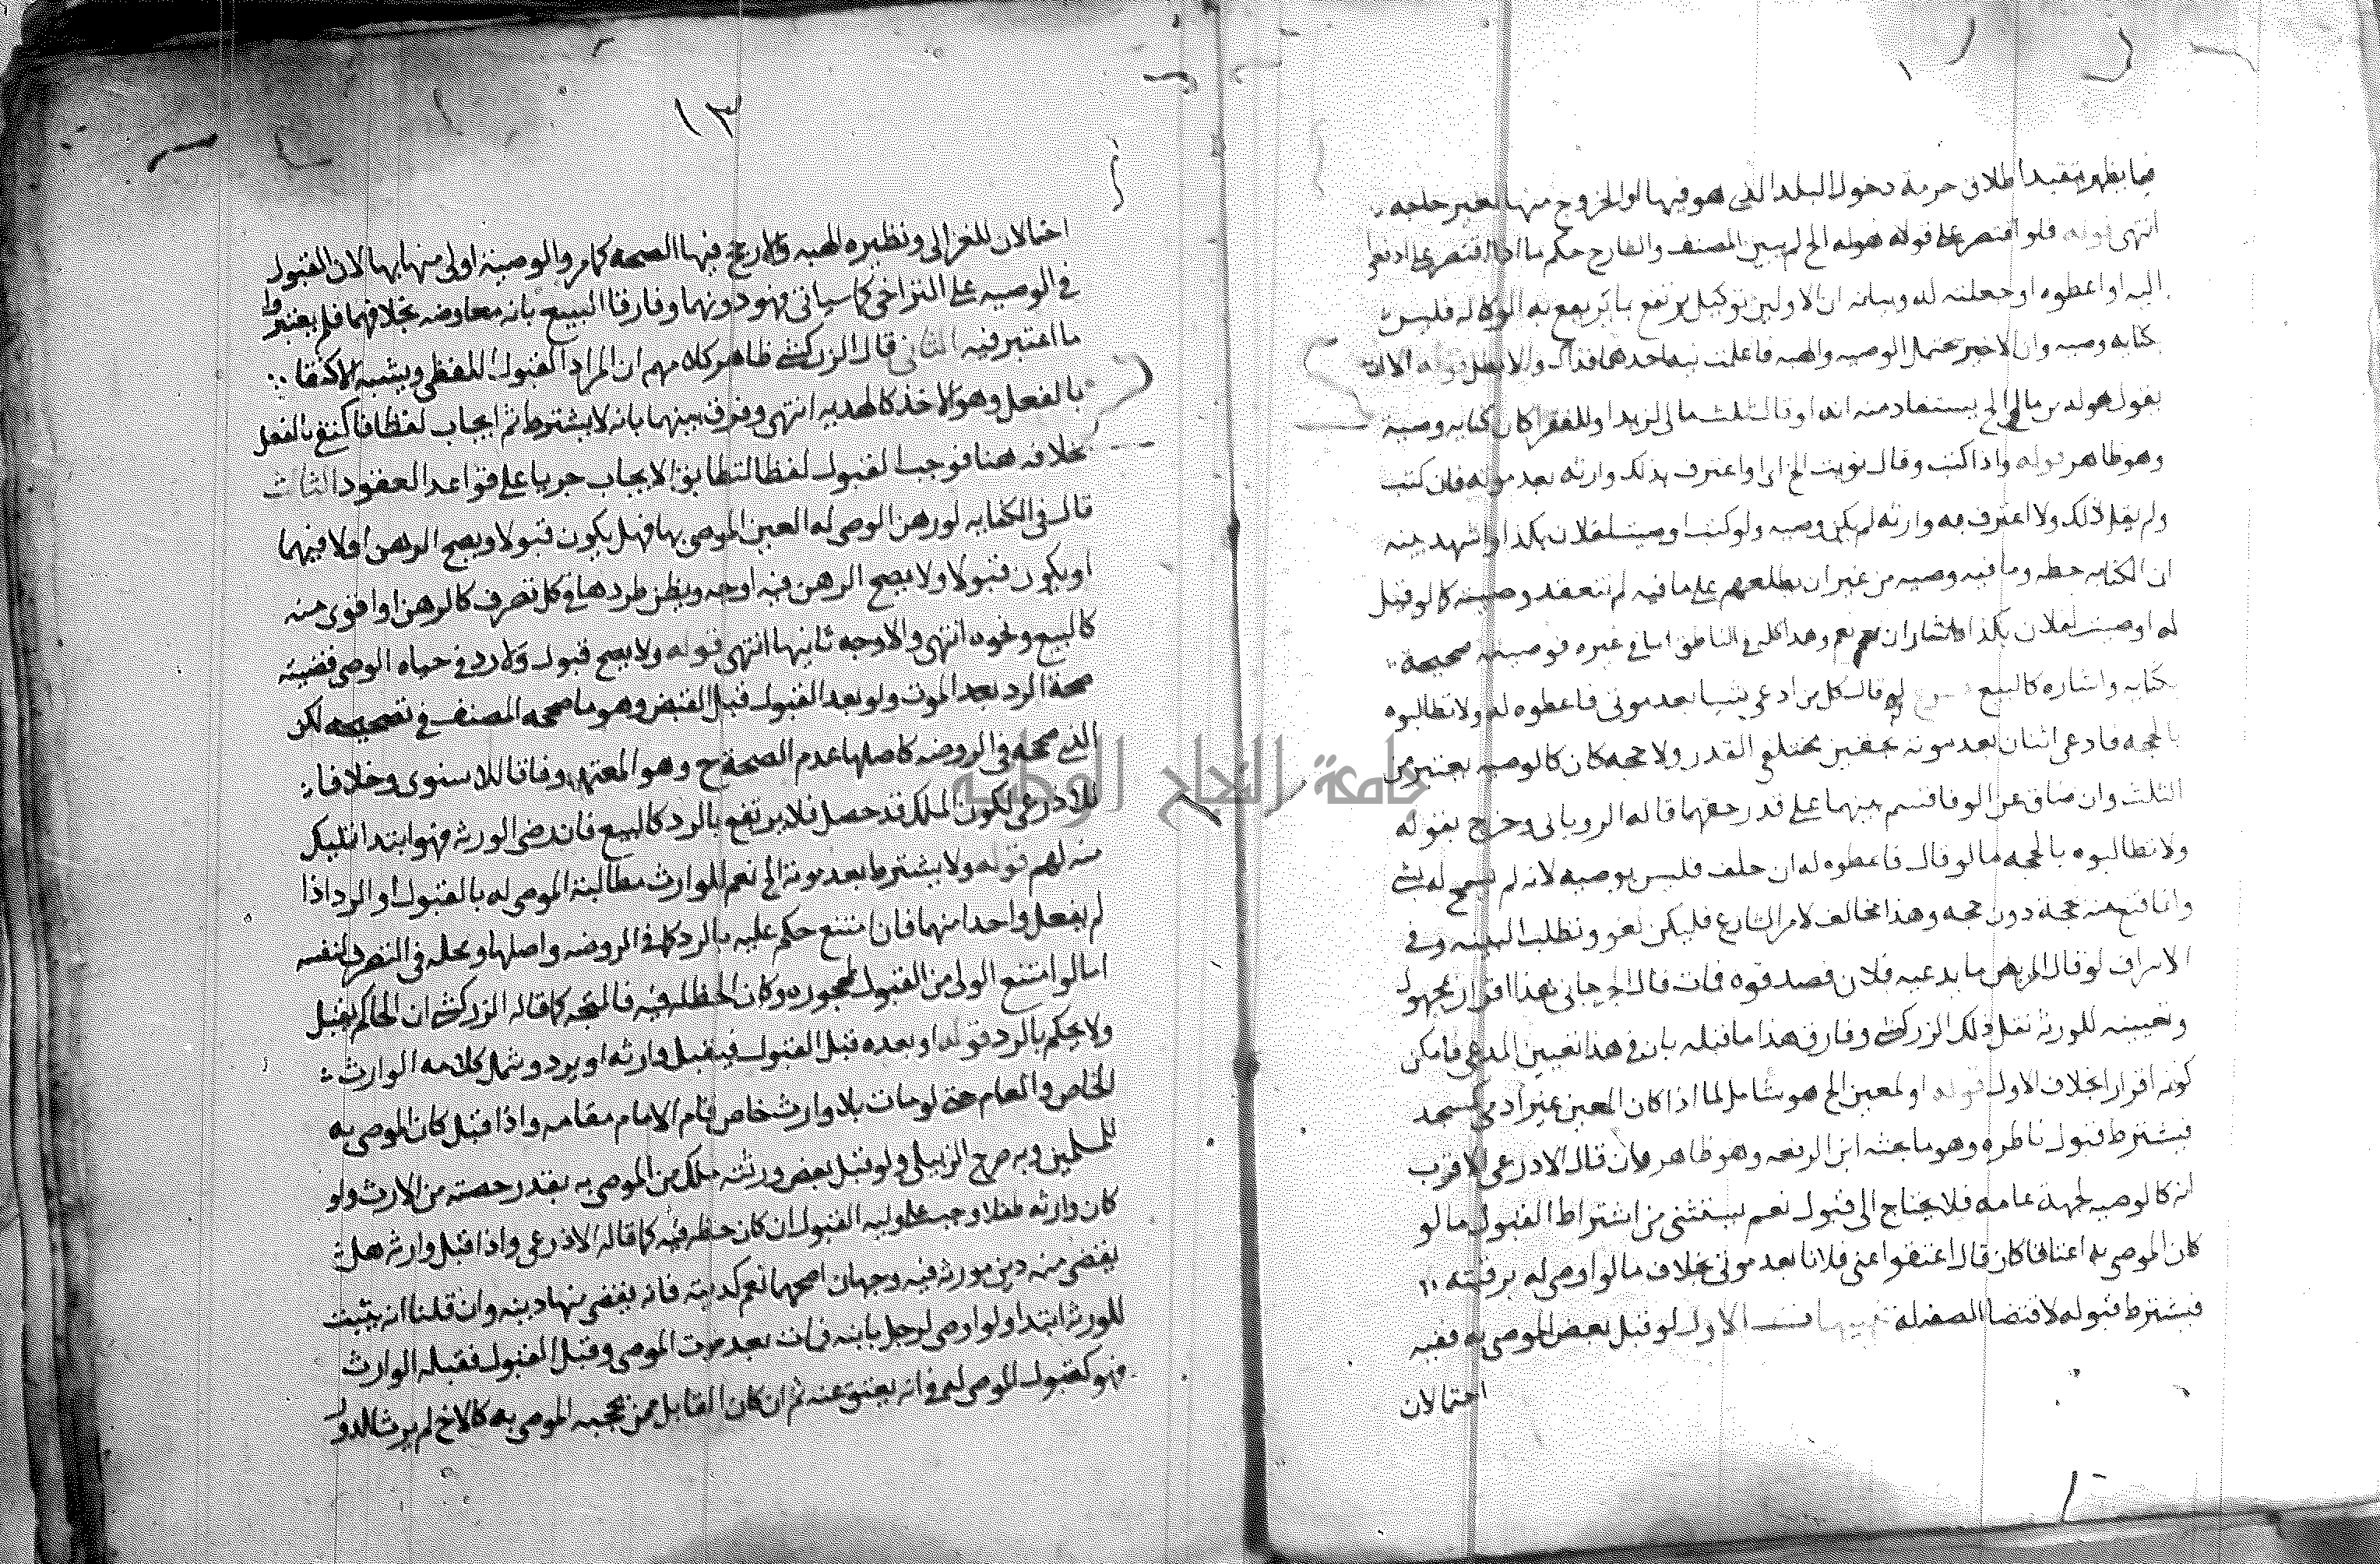 فيما يظهر تقييد اطلاق حرمة دخول البلد الذي هو فيها او الخروج منها لغير حاجه
انتهى قوله فلو اقتصر على قوله هو له الخ لم يبين المصنف والشارح حكم ما اذا اقتصر على ادفعوا
اليه او اعطوه او جعلته له وبيانه ان الاولين توكيل يرتفع بما يرتفع به الوكاله فليس
كنايه وصيه وان الاخير يحتمل الوصيه والهبه فان علمت نيه احدهما فذاك والا بطل قوله الا ان
يقول هو له من مالي الخ يستفاد منه انه لو قال ثلث مالي لزيد او للفقرا كان كنايه وصية
وهو ظاهر قوله واذا كتب وقال نويت الخ اي او اعترف بذلك وارثه بعد موته فان كتب
ولم يقل ذلك ولا اعترف به وارثه لم يكن وصيه ولو كتب اوصيت لفلان بكذا واشهد بينه
ان الكتابه خطه وما فيه وصيه من غير ان يطلعهم على ما فيه لم تنعقد وصيته كما لو قيل
له اوصيت لفلان بكذا فاشار ان نعم نعم وهذا كله في الناطق اما في غيره فوصيته صحيحة
بكتابه واشاره كالبيع فروع لو قال كل من ادعى شيئا بعد موتي فاعطوه له ولا تطالبوه
بالحجه فادعى اثنان بعد موته بحقين مختلفي القدر ولا حجه كان كالوصيه يعتبر من
الثلث وان ضاق عن الوفا قسم بينهما على قدر حقهما قاله الروياني وخرج بقوله
ولا تطالبوه بالحجه ما لو قال فاعطوه له ان حلف فليس بوصيه لانه لم يسمح له بشي
وانما قنع منه بحجة دون حجه وهذا مخالف لامر الشارع فليكن لغو وتطلب البينه وفي
الاشراف لو قال المريض ما يدعيه فلان فصدقوه فمات قال الجرجاني هذا اقرار بمجهول
وتعيينه للورثة نقل ذلك الزركشي وفارق هذا ما قبله بان في هذا تعيين المدعي فامكن
كونه اقرارا بخلاف الاول قوله او لمعين الخ هو شامل لما اذا كان المعين غير ادمي كمسجد
فيشترط قبول ناظره وهو ما بحثه ابن الرفعه وهو ظاهر وان قال الاذرعي الاقرب
انه كالوصيه لجهة عامه فلا يحتاج الى قبول نعم يستثنى من اشتراط القبول ما لو
كان الموصى به اعتاقا كان قال اعتقوا عني فلانا بعد موتي بخلاف ما لو اوصى له برقبته
فيشترط قبوله لاقتضا الصيغة له تنبيهات الاول لو قبل بعض الموصى به ففيه
احتمالان
١٣
احتمالان للغزالي ونظيره الهبه والارجح فيها الصحه كما مر والوصية اولى منها بها لان القبول
في الوصيه على التراخي كما سياتي فهو دونهما وفارقا البيع بانه معاوضه بخلافهما فلم يعتبروا
ما اعتبر فيه الثاني قال الزركشي ظاهر كلامهم ان المراد القبول اللفظي ويشبه الاكتفا
بالفعل وهو الاخذ كالهديه انتهى وفرق بينهما بانه لا يشترط ثم ايجاب لفظا فاكتفي بالفعل
بخلافه هنا فوجب القبول لفظا لتطابق الايجاب جريا على قواعد العقود الثالث
قال في الكفايه لو رهن الموصى له العين الموصى بها فهل يكون قبولا ويصح الرهن او لا فيهما
او يكون قبولا ولا يصح الرهن فيه اوجه ويظهر طردها في كل تصرف كالرهن او اقوى منه
كالبيع ونحوه انتهى والاوجه ثانيها انتهى قوله ولا يصح قبول ولا رد في حياه الموصي قضيته
صحة الرد بعد الموت ولو بعد القبول قبل القبض وهو ما صححه المصنف في تصحيحه لكن
الذي صححه في الروضه كاصلها عدم الصحة ح وهو المعتمد وفاقا للاسنوي وخلافا
للاذرعي لكون الملك قد حصل فلا يرتفع بالرد كالبيع فان رضي الورثه فهو ابتدا تمليك
منه لهم قوله ولا يشترط بعد موته الخ نعم للوارث مطالبة الموصى له بالقبول او الرد اذا
لم يفعل واحدا منهما فان امتنع حكم عليه بالرد كما في الروضه واصلها ومحله في المتصرف لنفسه
اما لو امتنع الولي من القبول لمحجوره وكان الحظ له فيه فالمتجه كما قاله الزركشي ان الحاكم يقبل
ولا يحكم بالرد قوله او بعده قبل القبول فيقبل وارثه او يرد وشمل كلامه الوارث
الخاص والعام حتى لو مات بلا وارث خاص قام الامام مقامه واذا قبل كان الموصى به
للمسلمين وبه صرح الزبيلي ولو قبل بعض ورثته ملك من الموصى به بقدر حصته من الارث ولو
كان وارثه طفلا وجب على وليه القبول ان كان حظه فيه كما قاله الاذرعي واذا قبل وارثه هل
يقضى منه دين مورثه فيه وجهان اصحهما نعم كديته فانه يقضى منها دينه وان قلنا انه تثبت
للورثه ابتدا ولو اوصى لرجل بابنه فمات بعد موت الموصي وقبل القبول فقبله الوارث
فهو كقبول الموصى له في انه يعتق عنه ثم ان كان القابل ممن يحجبه الموصى به كالاخ لم يرث الدور
جامعة النجاح الوطنية